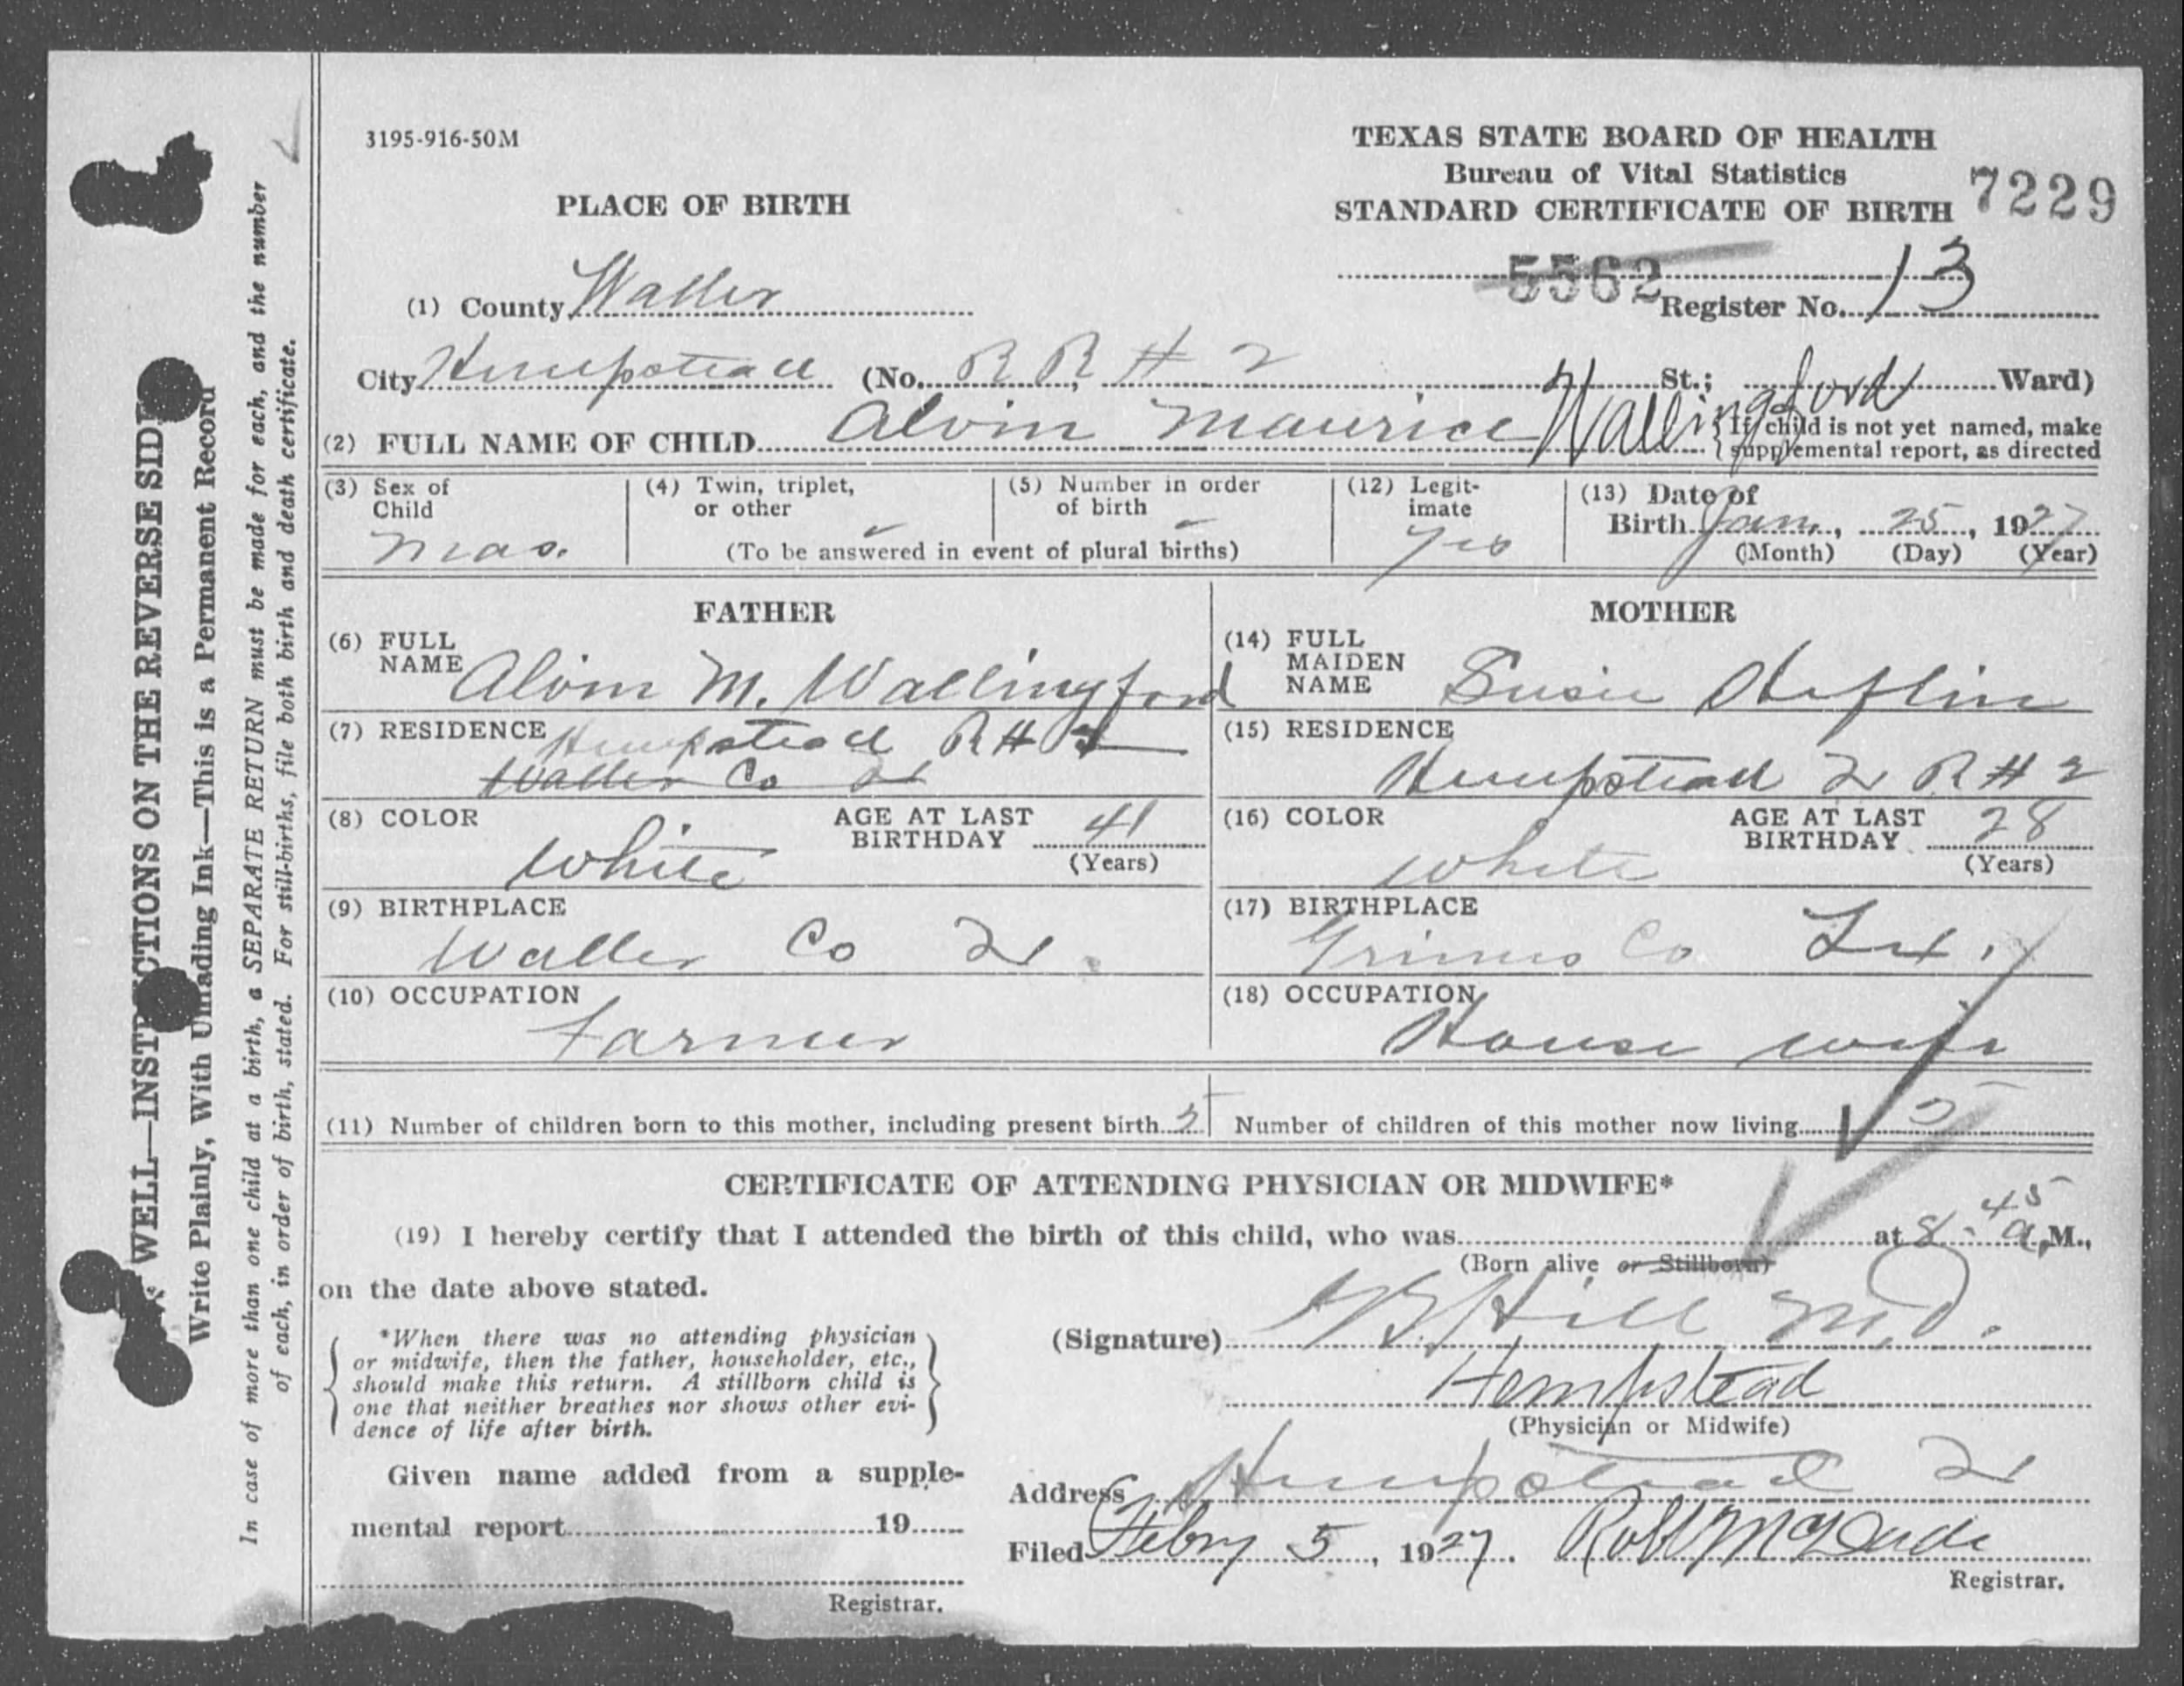 3195-916-50M
TEXAS STATE BOARD OF HEALTH
Bureau of Vital Statistics
STANDARD CERTIFICATE OF BIRTH 7229
PLACE OF BIRTH
5562 Register No. 13
(1) County Waller
City Hempstead (No. RR # 2 St.; Ward)
(2) FULL NAME OF CHILD Alvin Maurice Wallingford
{ If child is not yet named, make
supplemental report, as directed
(3) Sex of Child Mas.
(4) Twin, triplet, or other
(5) Number in order of birth
(To be answered in event of plural births)
(12) Legit-imate Yes
(13) Date of Birth Jan, 25, 1927
(Month) (Day) (Year)
FATHER
(6) FULL NAME Alvin M. Wallingford
(7) RESIDENCE Hempstead R # 2
Waller Co
(8) COLOR White
AGE AT LAST BIRTHDAY 41
(Years)
(9) BIRTHPLACE
Waller Co
(10) OCCUPATION
Farmer
MOTHER
(14) FULL MAIDEN NAME Susie Heflin
(15) RESIDENCE
Hempstead R # 2
(16) COLOR White
AGE AT LAST BIRTHDAY 28
(Years)
(17) BIRTHPLACE
Grimes Co Tex.
(18) OCCUPATION
House wife
(11) Number of children born to this mother, including present birth Number of children of this mother now living
CERTIFICATE OF ATTENDING PHYSICIAN OR MIDWIFE*
(19) I hereby certify that I attended the birth of this child, who was at 8-45 a, M.,
(Born alive or Stillborn)
on the date above stated.
*When there was no attending physician
or midwife, then the father, householder, etc.,
should make this return. A stillborn child is
one that neither breathes nor shows other evi-
dence of life after birth.
(Signature) Hill M.D.
Hempstead
(Physician or Midwife)
Given name added from a supple-
mental report 19
Registrar.
Address Hempstead
Filed Febry 5, 1927. Registrar.
WELL—INSTRUCTIONS ON THE REVERSE SIDE
Write Plainly, With Unfading Ink—This is a Permanent Record
In case of more than one child at a birth, a SEPARATE RETURN must be made for each, and the number
of each, in order of birth, stated. For still-births, file both birth and death certificate.